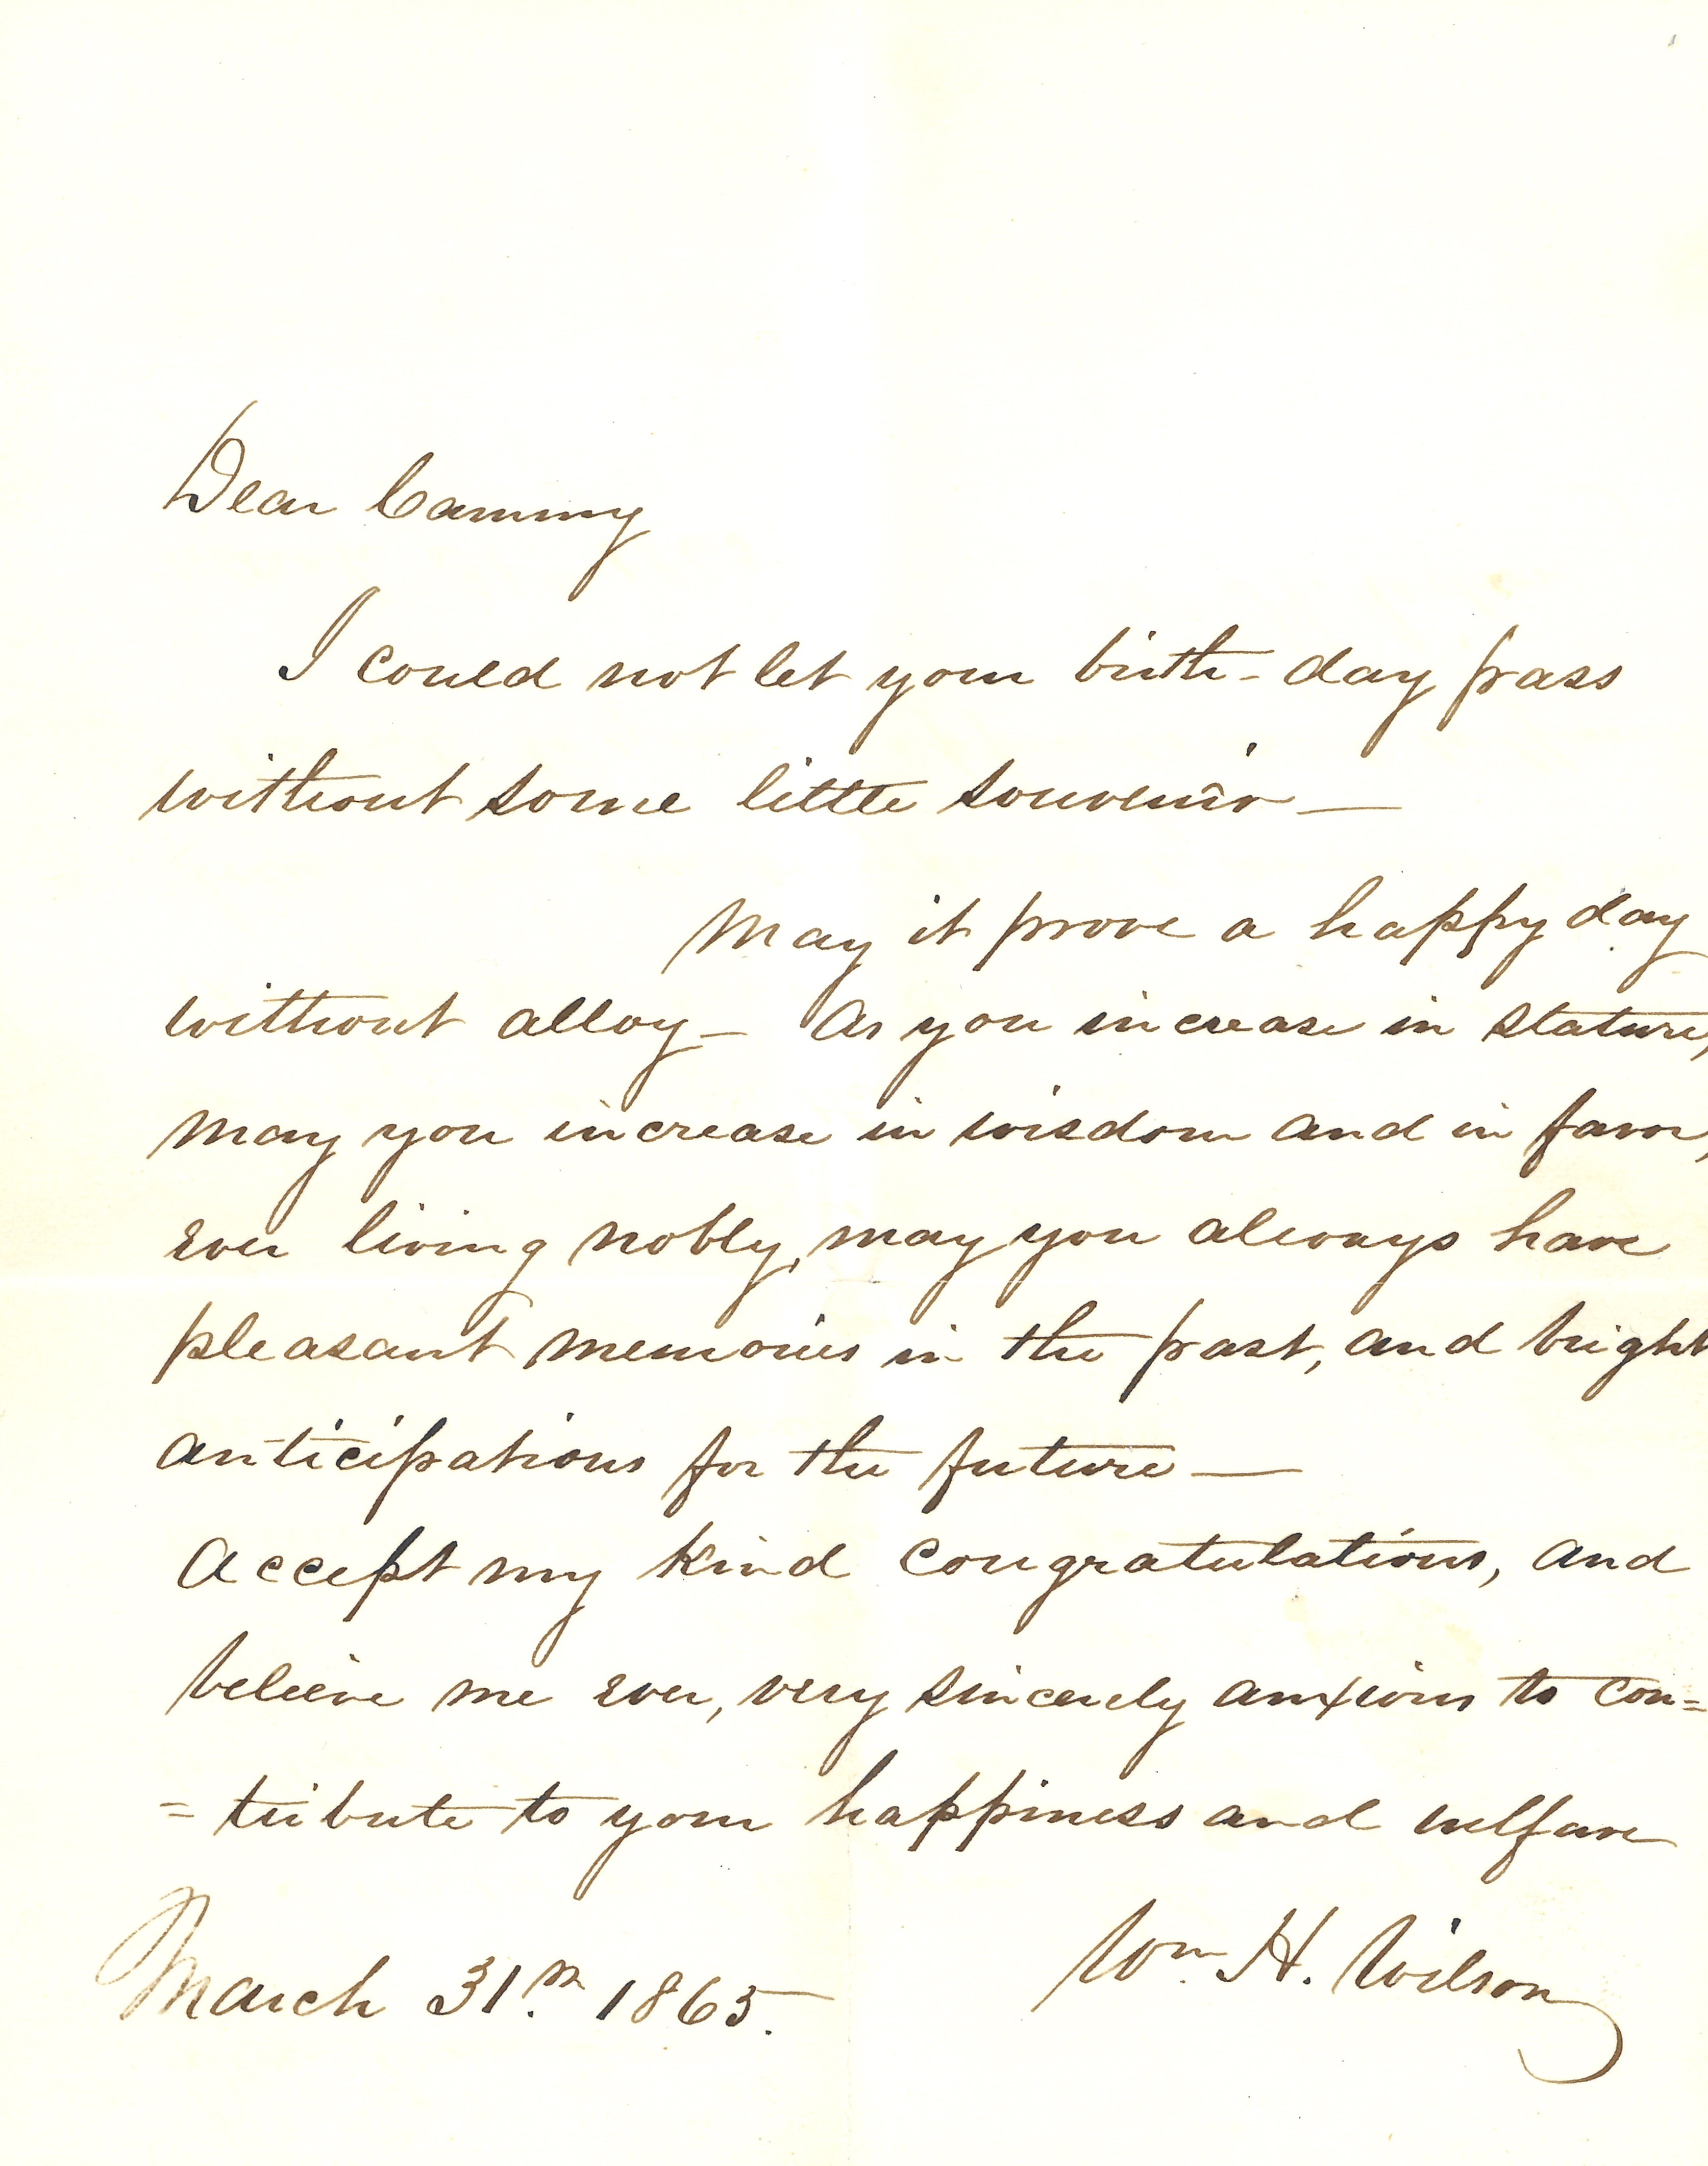 Dear Cammy
I could not let your birth-day pass
without some little souvenir —
May it prove a happy day
without alloy — As you increase in stature,
may you increase in wisdom and in favor,
ever living nobly, may you always have
pleasant memories in the past, and bright
anticipations for the future —
Accept my kind congratulations, and
believe me ever, very sincerely anxious to con=
=tribute to your happiness and welfare
Wm. H. Wilson
March 31. 1865.